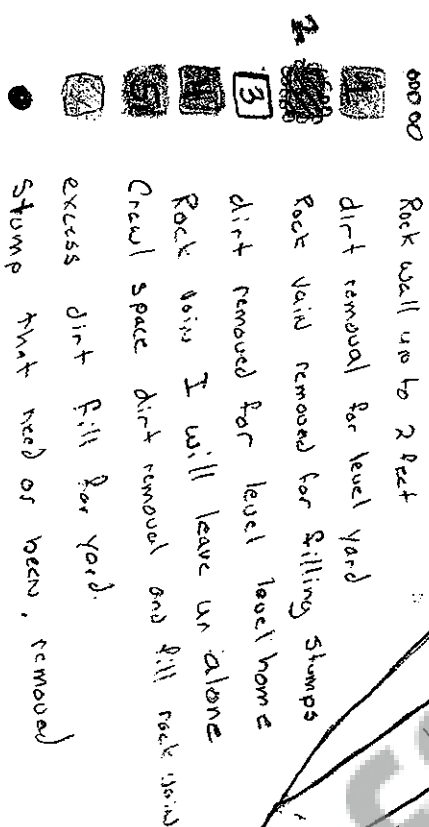 Rock wall up to 2 feet
1 dirt removal for level yard
2 Rock vain removed for filling stumps
3 dirt removed for level level home
4 Rock vain I will leave un alone
5 Crawl space dirt removal and fill rock vain
excess dirt fill for yard.
Stump that need or been, removed